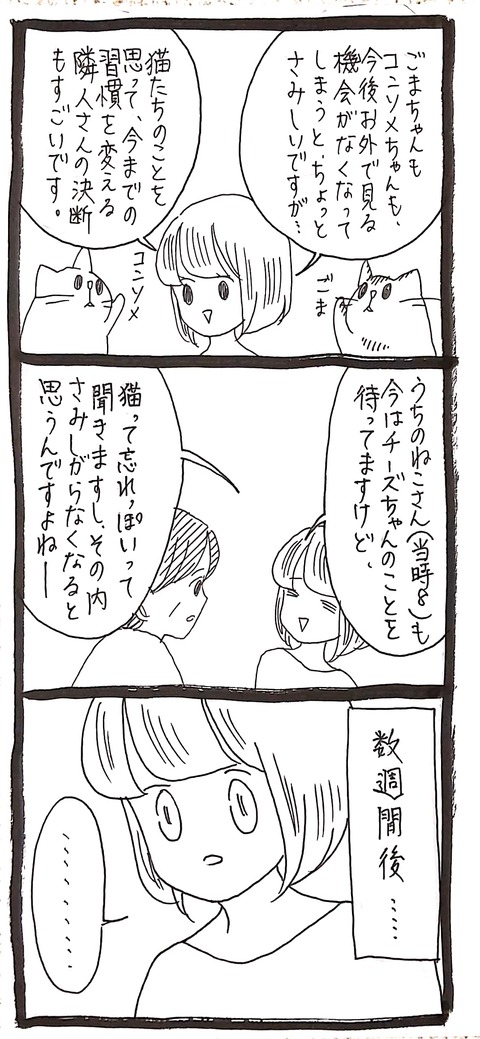 ごまちゃんも
コンソメちゃんも、
今後お外で見る
機会がなくなって
しまうと、ちょっと
さみしいですが…
ごま
猫たちのことを
思って、今までの
習慣を変える
隣人さんの決断
もすごいです。
コンソメ
うちのねこさん(当時8)も
今はチーズちゃんのことを
待ってますけど、
猫って忘れっぽいって
聞きますし、その内
さみしがらなくなると
思うんですよねー
数週間後……
……………